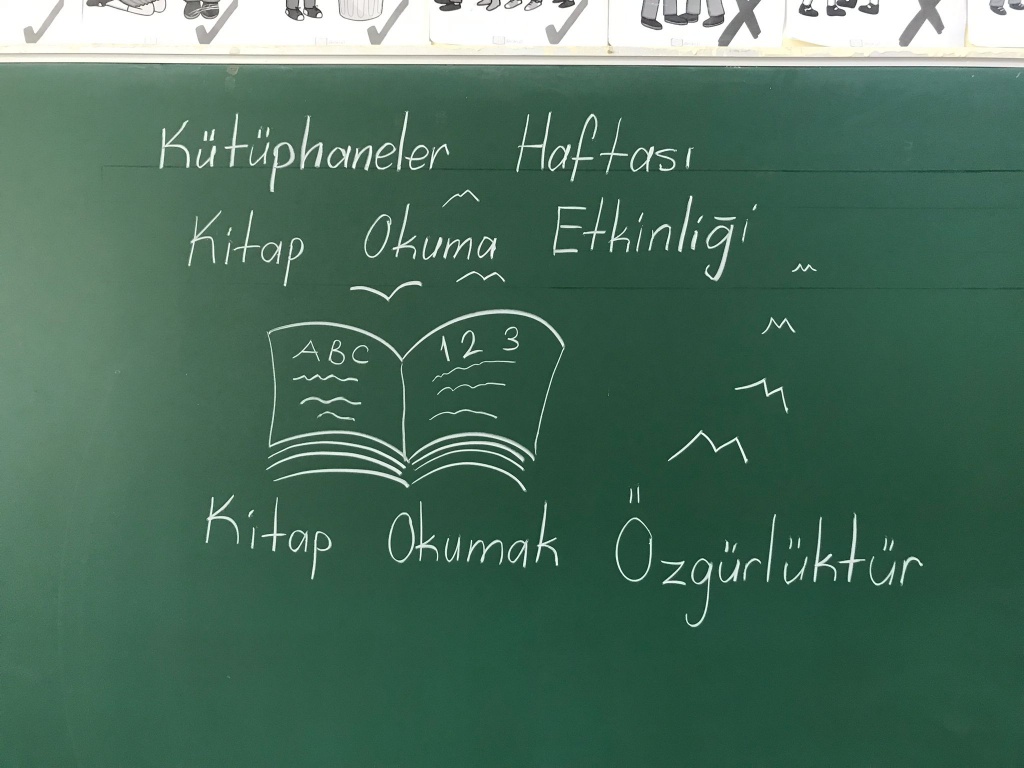 Kütüphaneler Haftası
Kitap Okuma Etkinliği
ABC
1 2 3
Kitap Okumak Özgürlüktür